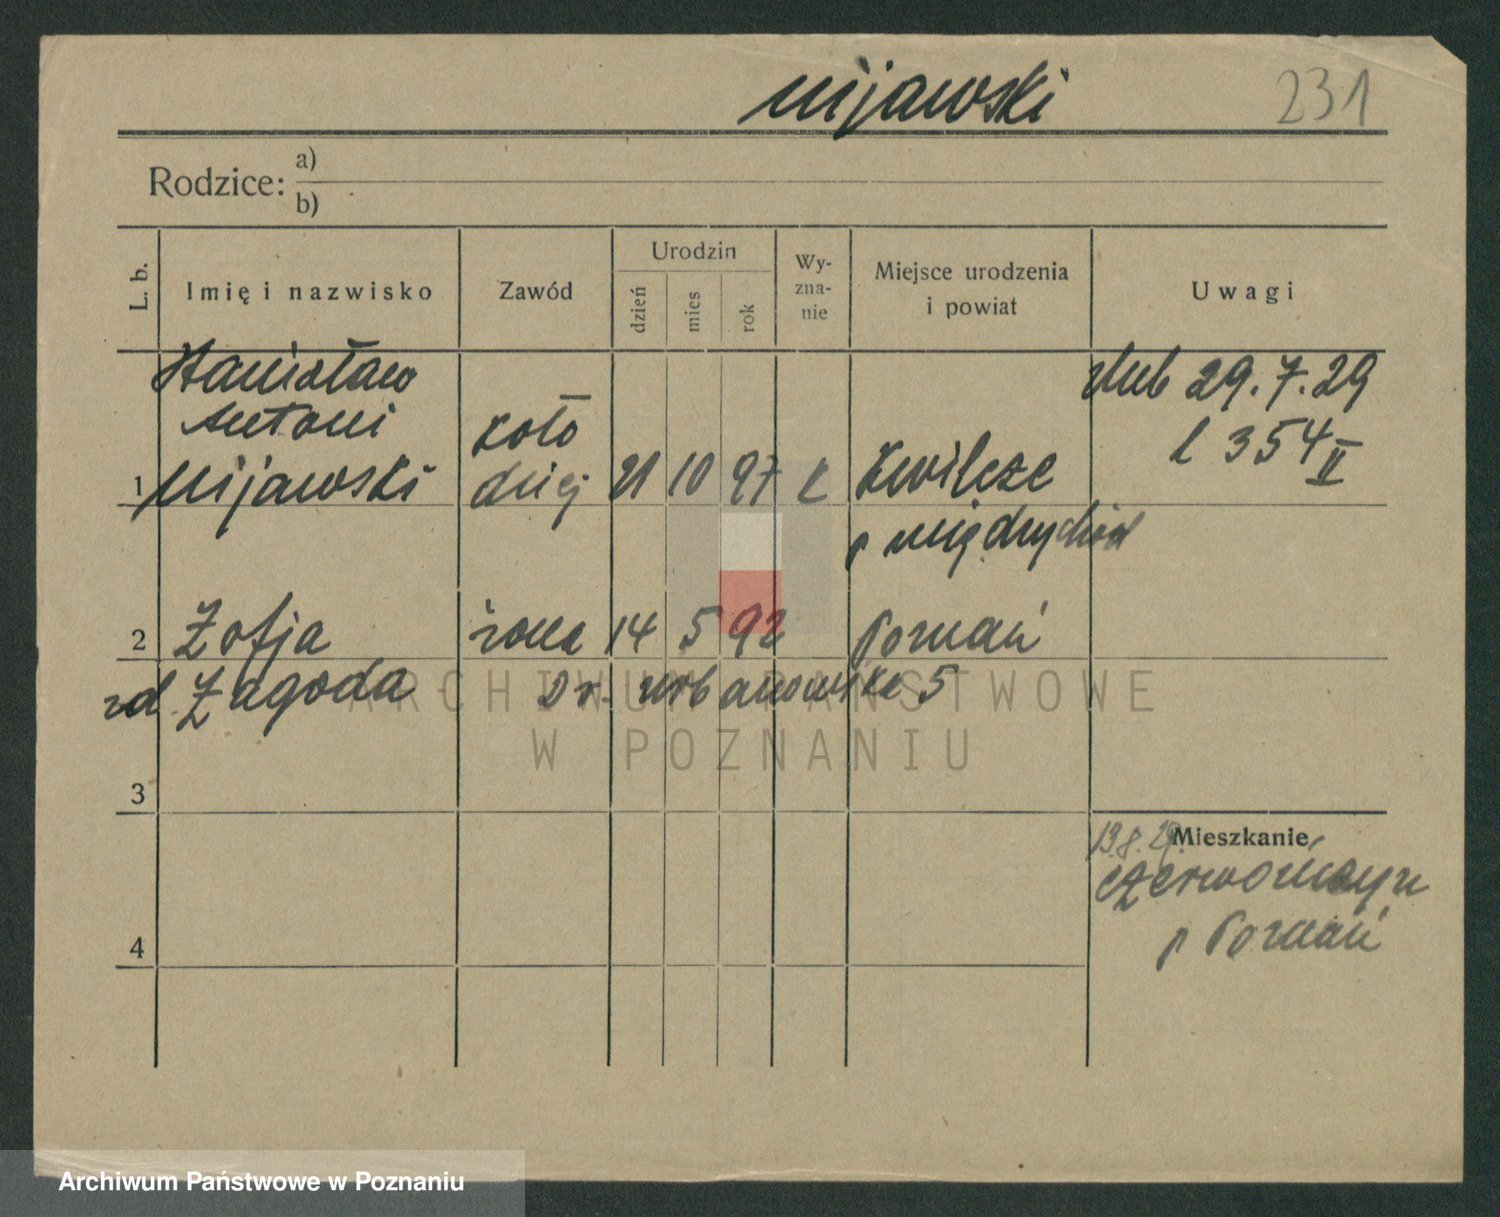 Mijawski 231
Rodzice: a)
b)
L. b. Imię i nazwisko Zawód Urodzin dzień mies rok Wy-zna-nie Miejsce urodzenia i powiat Uwagi
Stanisław ślub 29.7.29
Antoni koło l 354 II
1 Mijawski dziej 21 10 97 k Kwilcze
p Międzychód
2 Zofja żona 14 5 92 Poznań
zd. Zagoda Dr. Urbanowska 5
ARCHIWUM PAŃSTWOWE
W POZNANIU
3
13.8.29. Mieszkanie
p Poznań
4
Archiwum Państwowe w Poznaniu